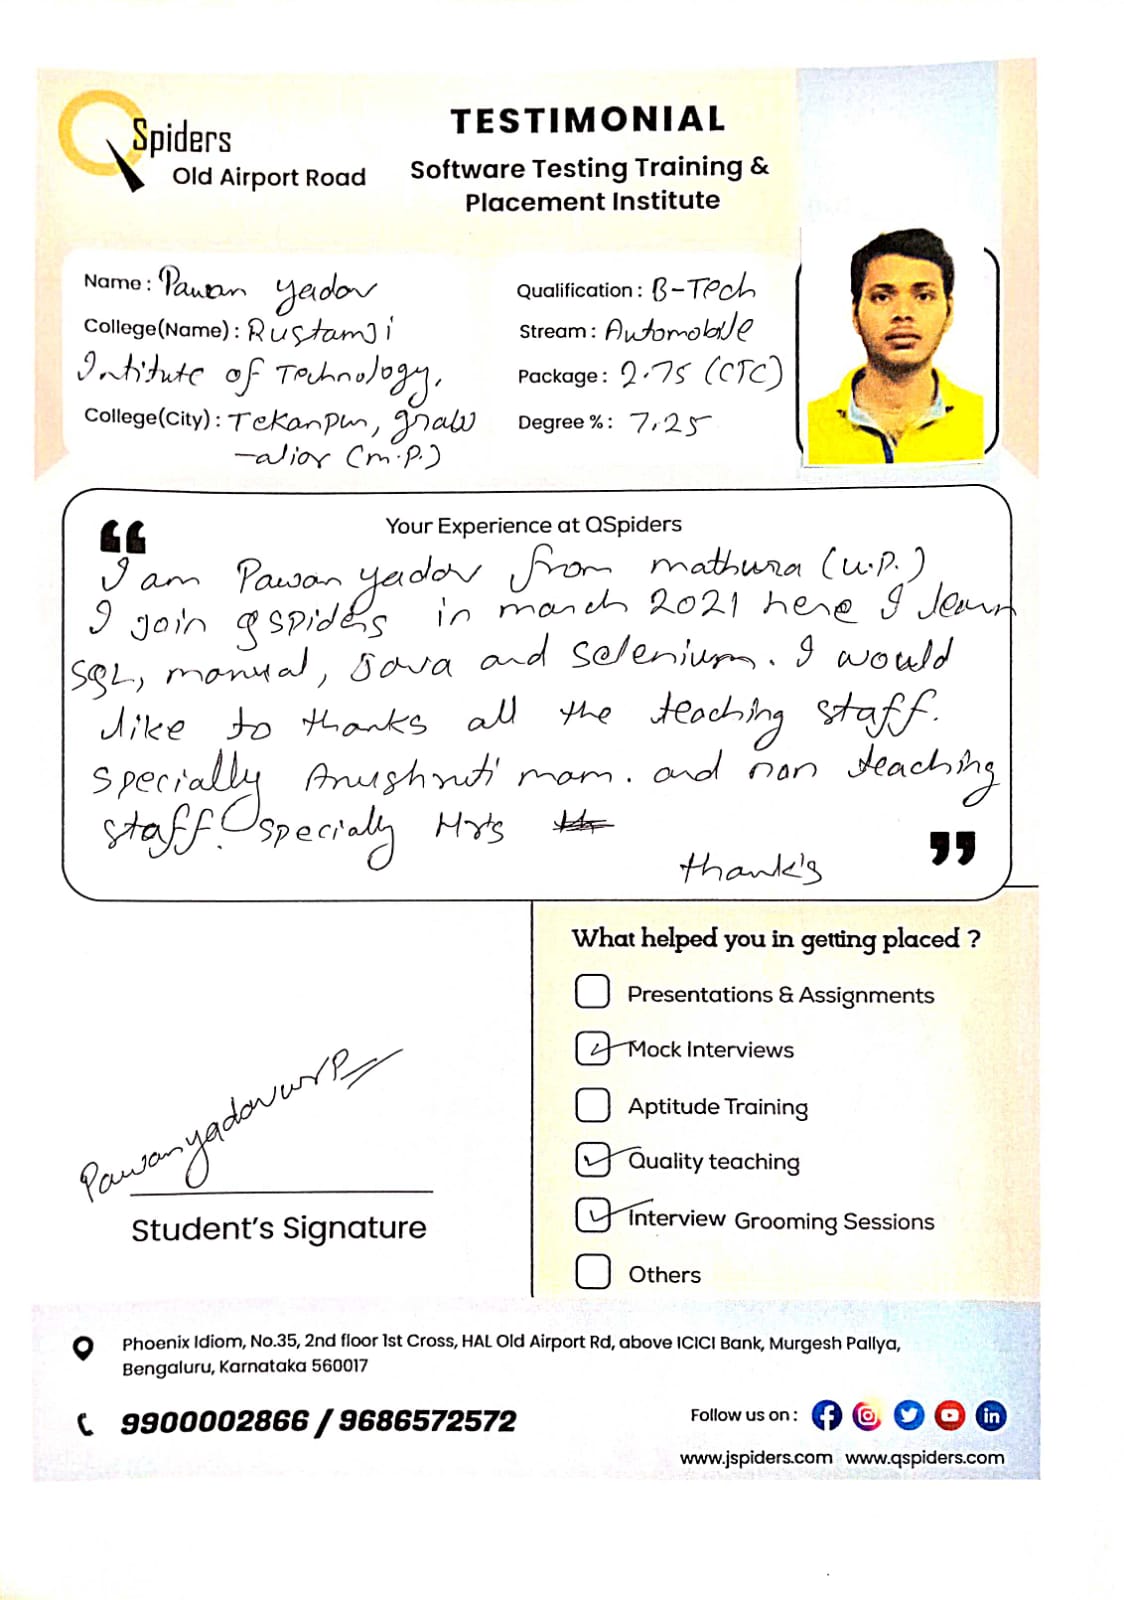 QSpiders
Old Airport Road
TESTIMONIAL
Software Testing Training &
Placement Institute
Name : Pawan yadav
College(Name) : Rustamji
Intitute of Technology,
College(City) : Tekanpur, gwal
-alior (m.p.)
Qualification : B-Tech
Stream : Automobile
Package : 2.75 (CTC)
Degree % : 7.25
Your Experience at QSpiders
I am Pawan yadav from mathura (u.p.)
I join qspiders in march 2021 here I learn
SQL, manual, Java and Selenium. I would
like to thanks all the teaching staff.
specially Anushruti mam. and non teaching
staff. specially Hrs
thank's
What helped you in getting placed ?
Presentations & Assignments
Mock Interviews
Aptitude Training
Quality teaching
Interview Grooming Sessions
Others
Pawanyadav
Student's Signature
Phoenix Idiom, No.35, 2nd floor 1st Cross, HAL Old Airport Rd, above ICICI Bank, Murgesh Pallya,
Bengaluru, Karnataka 560017
9900002866 / 9686572572
Follow us on :
www.jspiders.com www.qspiders.com